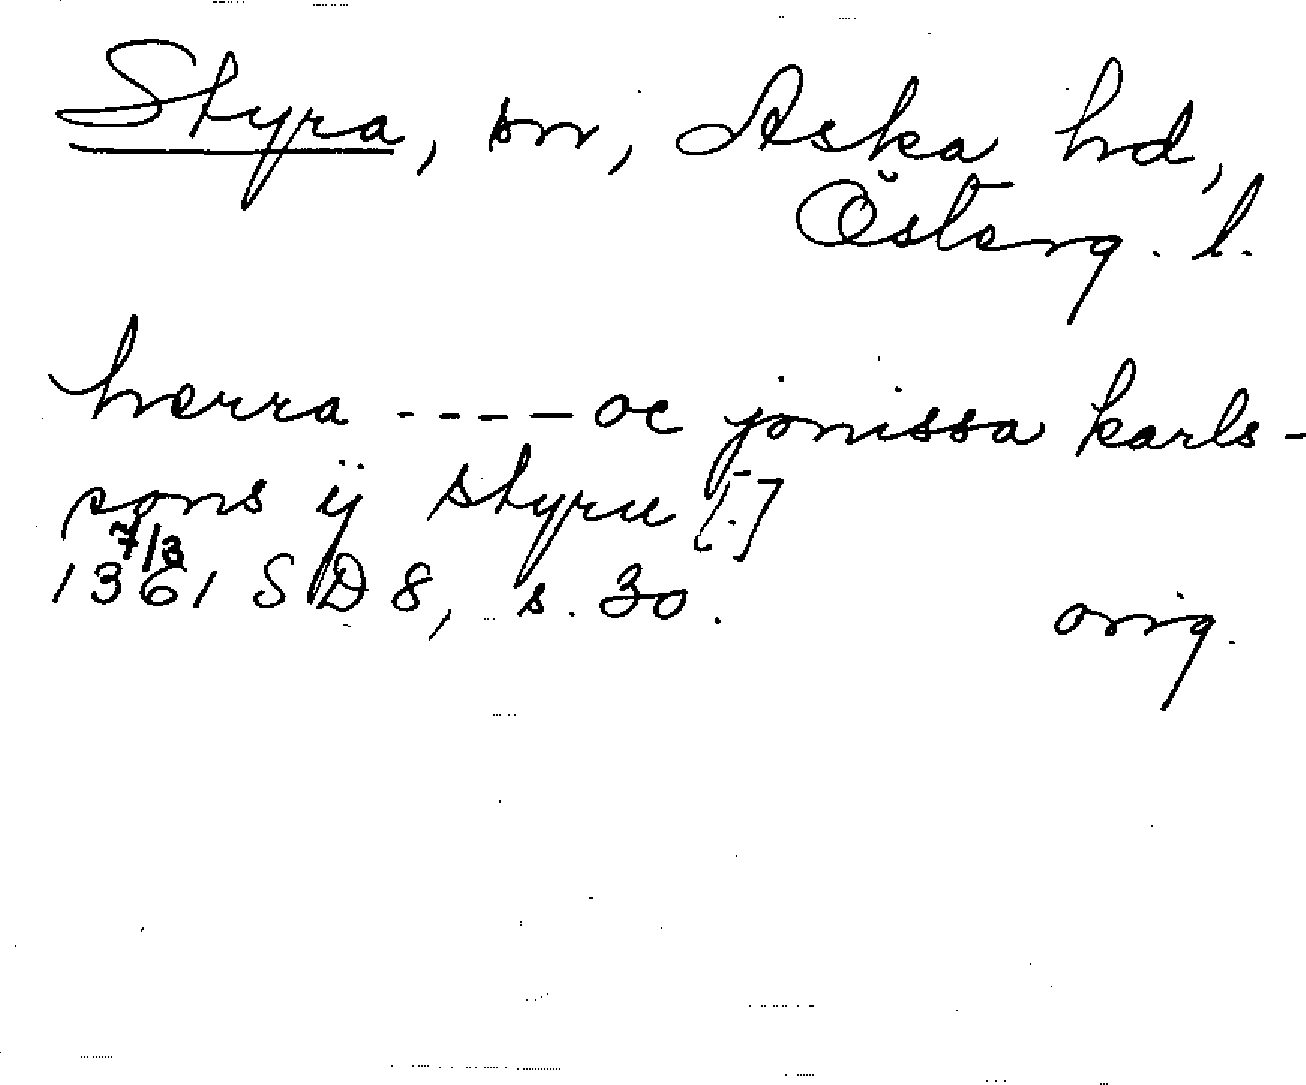 Styra, sn, Aska hd,
Österg. l.
hærra ---- oc jonissa karls-
sons ij styru [.]
7/3
1361 SD 8, s. 30. orig.